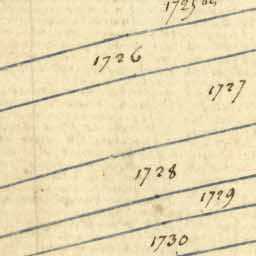 1726
1727
1728
1729
1730